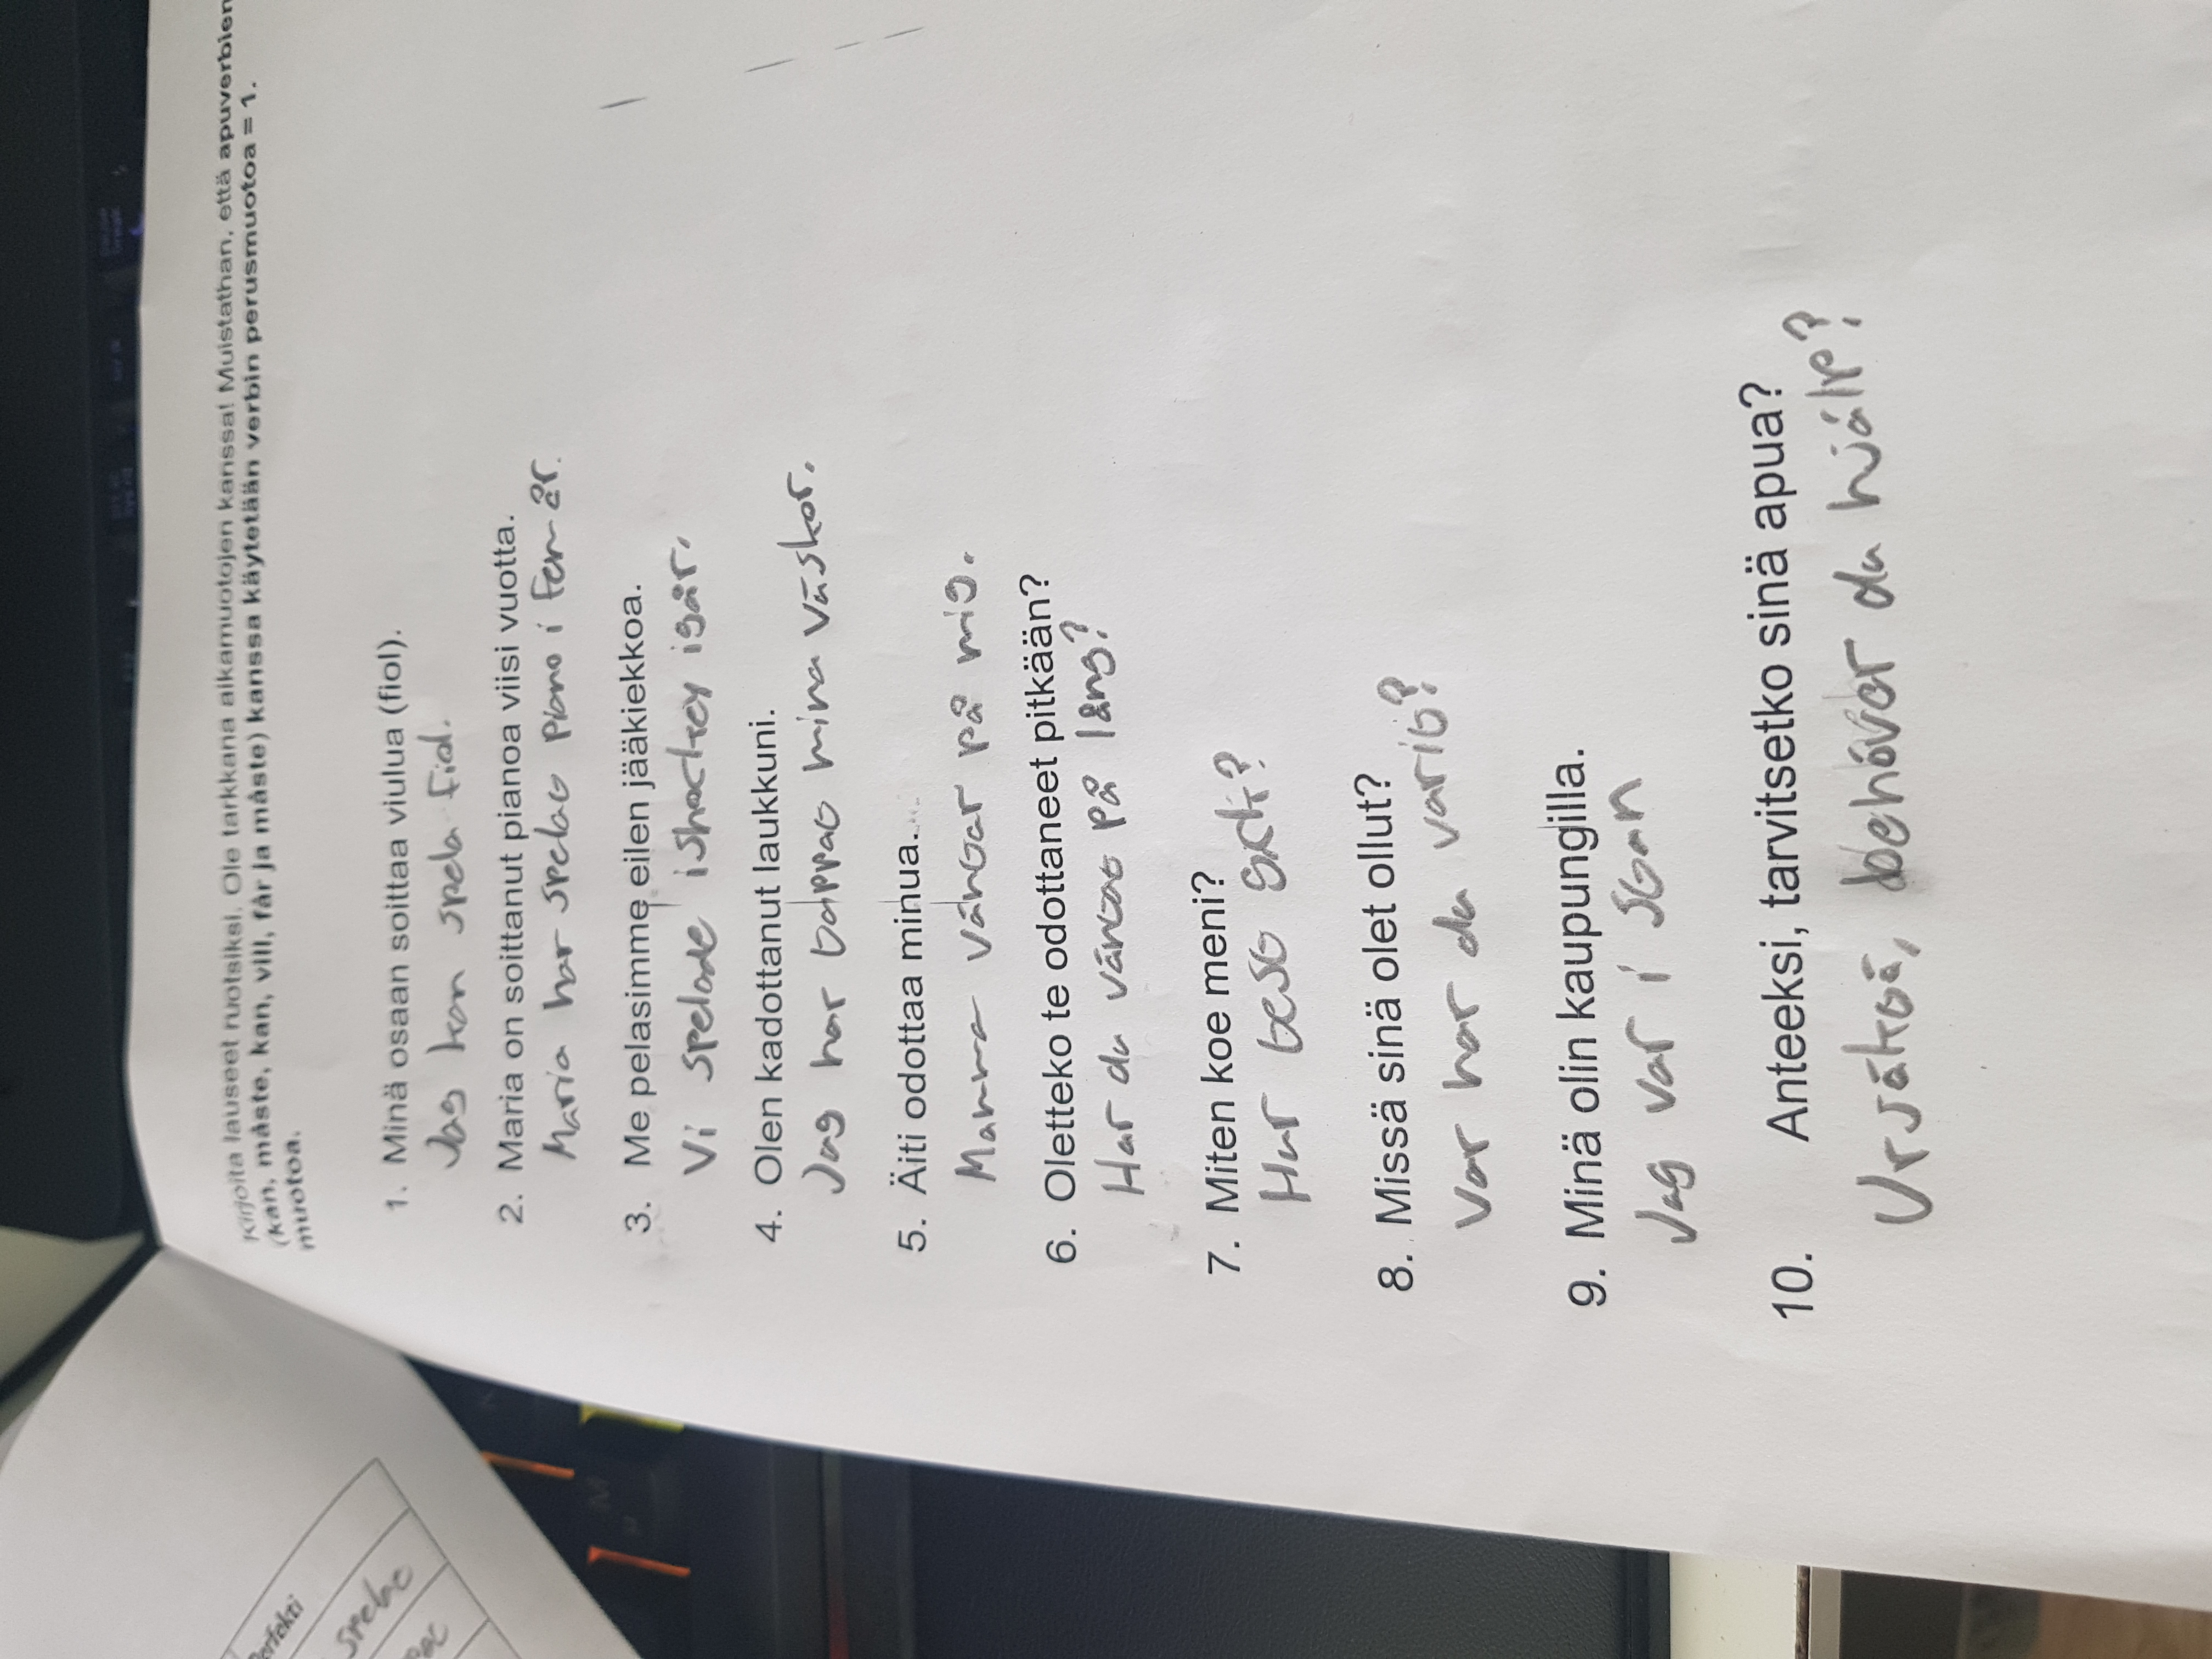 Kirjoita lauseet ruotsiksi. Ole tarkkana aikamuotojen kanssa! Muistathan, että apuverbien
(kan, måste, kan, vill, får ja måste) kanssa käytetään verbin perusmuotoa = 1.
muotoa.
1. Minä osaan soittaa viulua (fiol).
Jag kan spela fiol.
2. Maria on soittanut pianoa viisi vuotta.
Maria har spelat piano i fem år.
3. Me pelasimme eilen jääkiekkoa.
Vi spelade ishockey igår.
4. Olen kadottanut laukkuni.
Jag har tappat mina väskor.
5. Äiti odottaa minua.
Mamma väntar på mig.
6. Oletteko te odottaneet pitkään?
Har du väntat på lång?
7. Miten koe meni?
Hur test gått?
8. Missä sinä olet ollut?
Var har du varit?
9. Minä olin kaupungilla.
Jag var i stan
10. Anteeksi, tarvitsetko sinä apua?
behöver du hjälp?
Perfekti
spelat